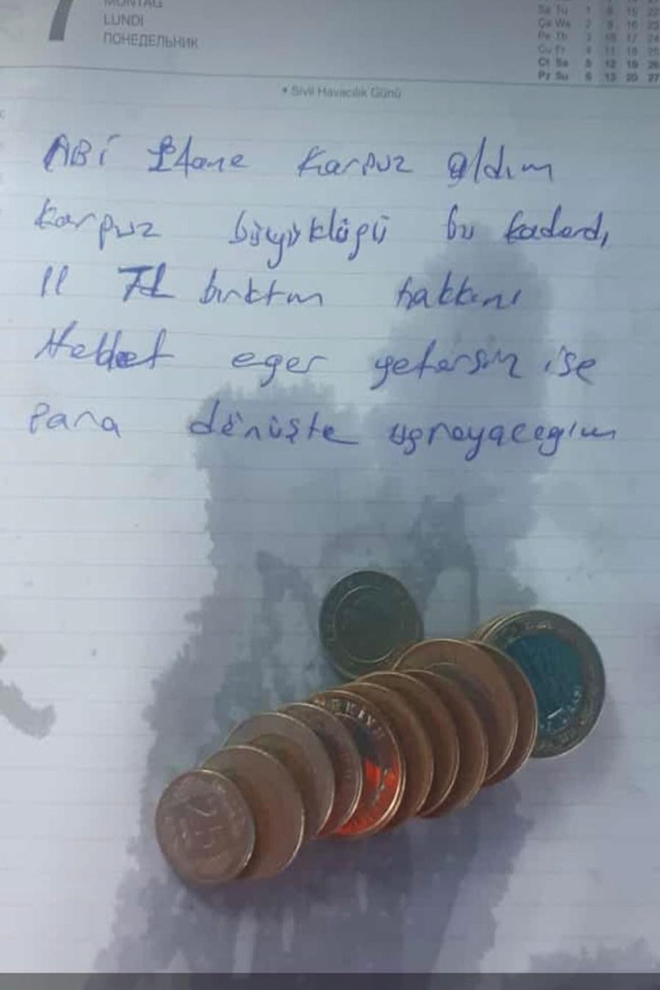 7
MONTAG
LUNDI
ПОНЕДЕЛЬНИК
• Sivil Havacılık Günü
ABİ 1 tane karpuz aldım
karpuz büyüklüğü bu kadardı
11 TL bıraktım hakkını
Helal et eger yetersiz ise
Para dönüşte uğrayacağım